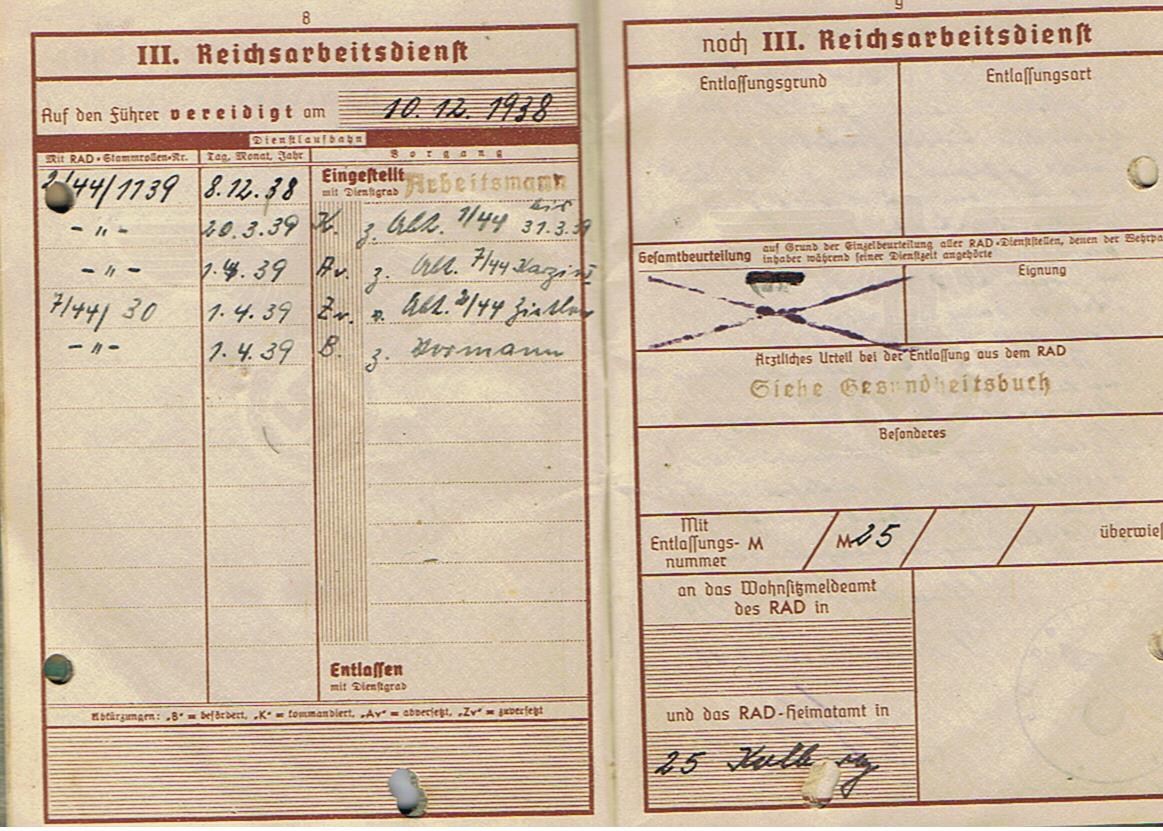 8
III. Reichsarbeitsdienst
Auf den Führer vereidigt am 10.12.1938
Dienstlaufbahn
Mit RAD-Stammrollen-Nr. Tag, Monat, Jahr Vorgang
2/44/1139 8.12.38 Eingestellt mit Dienstgrad Arbeitsmann
bis
- " - 20.3.39 K. z. Abt. 1/44 31.3.39
- " - 1.4.39 Av. z. Abt. 7/44
7/44/30 1.4.39 Zv. Abt. 2/44
- " - 1.4.39 B. z. Vormann
Entlassen
mit Dienstgrad
Abkürzungen: „B" = befördert, „K" = kommandiert, „Av" = abversetzt, „Zv" = zuversetzt
9
noch III. Reichsarbeitsdienst
Entlassungsgrund Entlassungsart
Gesamtbeurteilung auf Grund der Einzelbeurteilung aller RAD-Dienststellen, denen der Wehrpa
inhaber während seiner Dienstzeit angehörte
Eignung
Ärztliches Urteil bei der Entlassung aus dem RAD
Siehe Gesundheitsbuch
Besonderes
Mit
Entlassungs- M / M25 / / überwies
nummer
an das Wohnsitzmeldeamt
des RAD in
und das RAD-Heimatamt in
25